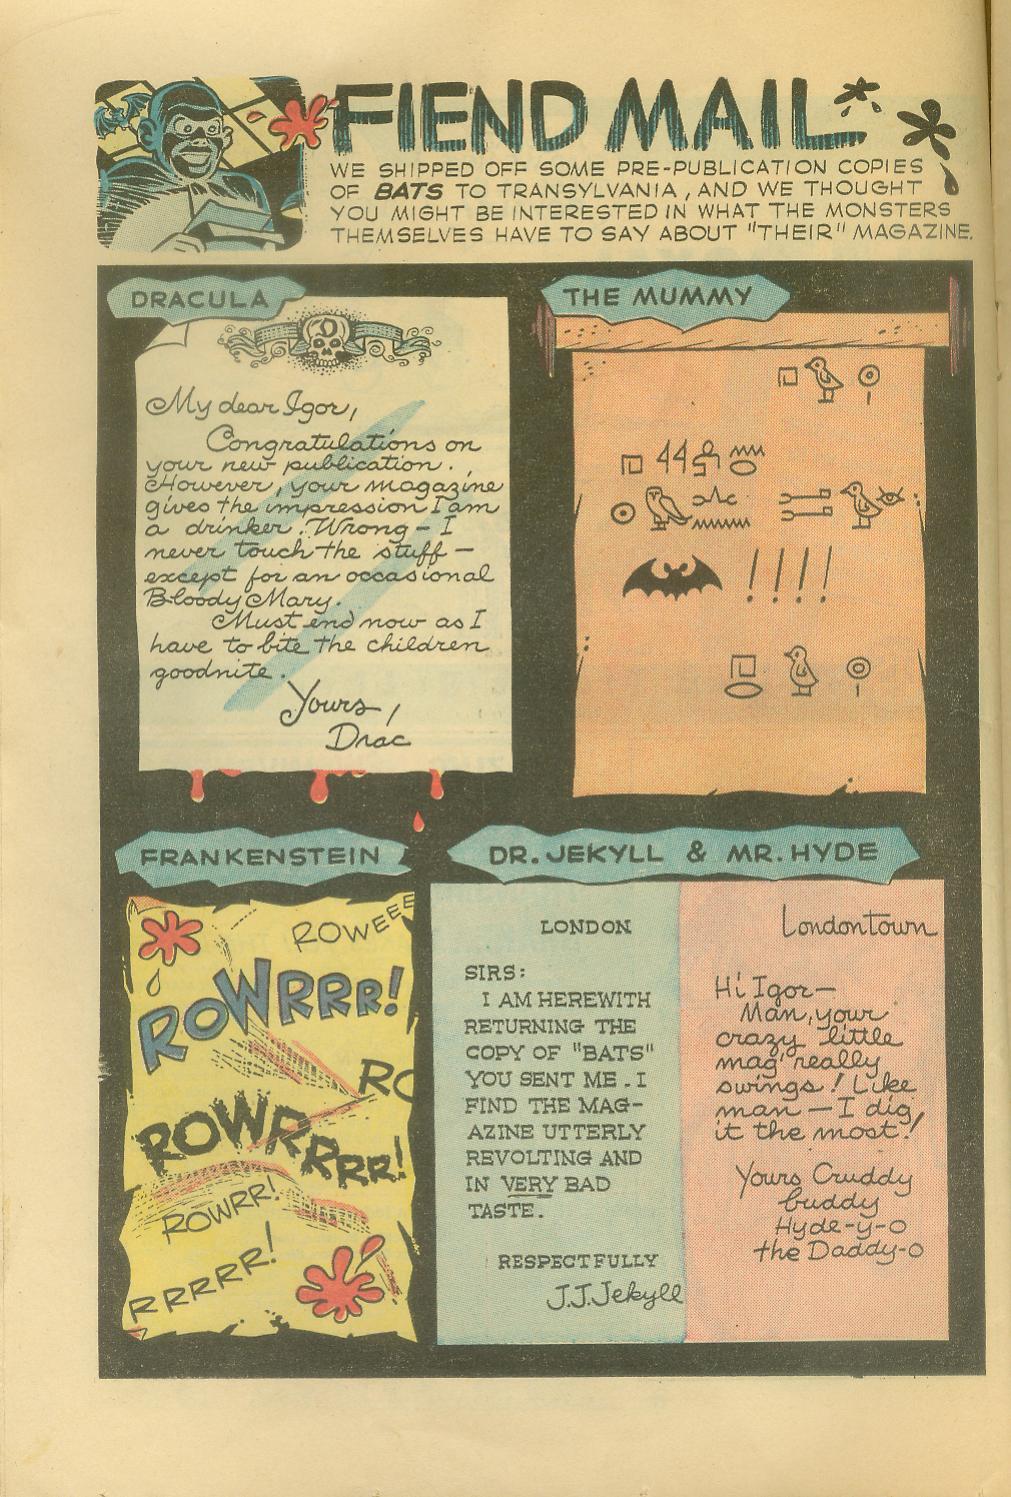 FIEND MAIL
WE SHIPPED OFF SOME PRE-PUBLICATION COPIES
OF BATS TO TRANSYLVANIA, AND WE THOUGHT
YOU MIGHT BE INTERESTED IN WHAT THE MONSTERS
THEMSELVES HAVE TO SAY ABOUT "THEIR" MAGAZINE.
DRACULA
D
My dear Igor,
Congratulations on
your new publication.
However, your magazine
gives the impression I am
a drinker. Wrong - I
never touch the stuff -
except for an occasional
Bloody Mary.
Must end now as I
have to bite the children
goodnite.
Yours,
Drac
THE MUMMY
!!!!
FRANKENSTEIN
ROWEEE
ROWRRR!
RO
ROWRRRRR!
ROWRR!
RRRRR!
DR. JEKYLL & MR. HYDE
LONDON
SIRS:
I AM HEREWITH
RETURNING THE
COPY OF "BATS"
YOU SENT ME. I
FIND THE MAG-
AZINE UTTERLY
REVOLTING AND
IN VERY BAD
TASTE.
RESPECTFULLY
J.J.Jekyll
Londontown
Hi Igor-
Man, your
crazy little
mag really
swings! Like
man - I dig
it the most!
Yours Cruddy
buddy
Hyde-y-o
the Daddy-o